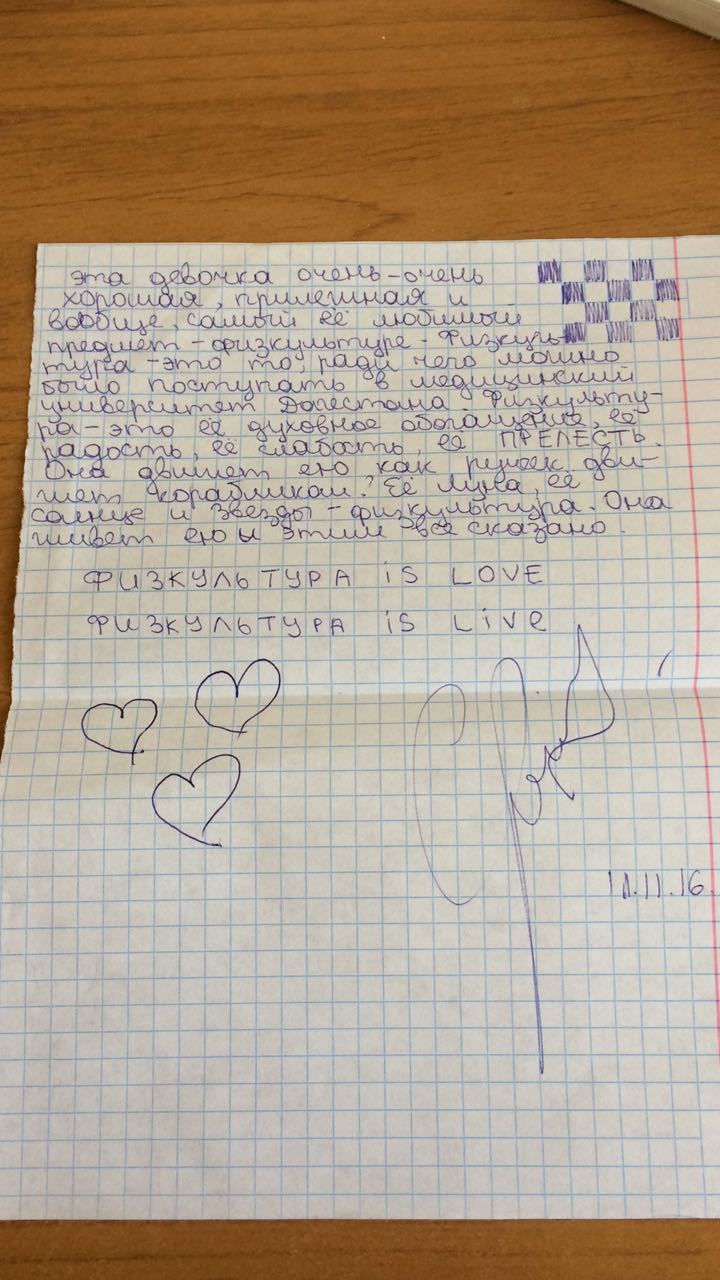 эта девочка очень-очень
хорошая, прилежная и
вообще, самый её любимый
предмет - физкультуре - Физкуль-
тура - это то, ради чего можно
было поступать в медицинский
университет Дагестана. Физкульту-
ра - это её духовное обогащение, её
радость, её слабость, её ПРЕЛЕСТЬ.
Она движет ею как ручеёк дви-
жет корабликом? Её Луна, её
солнце и звёзды - физкультура. Она
живёт ею и этим всё сказано.
ФИЗКУЛЬТУРА iS LOVE
ФИЗКУЛЬТУРА iS LiVe
11.11.16.